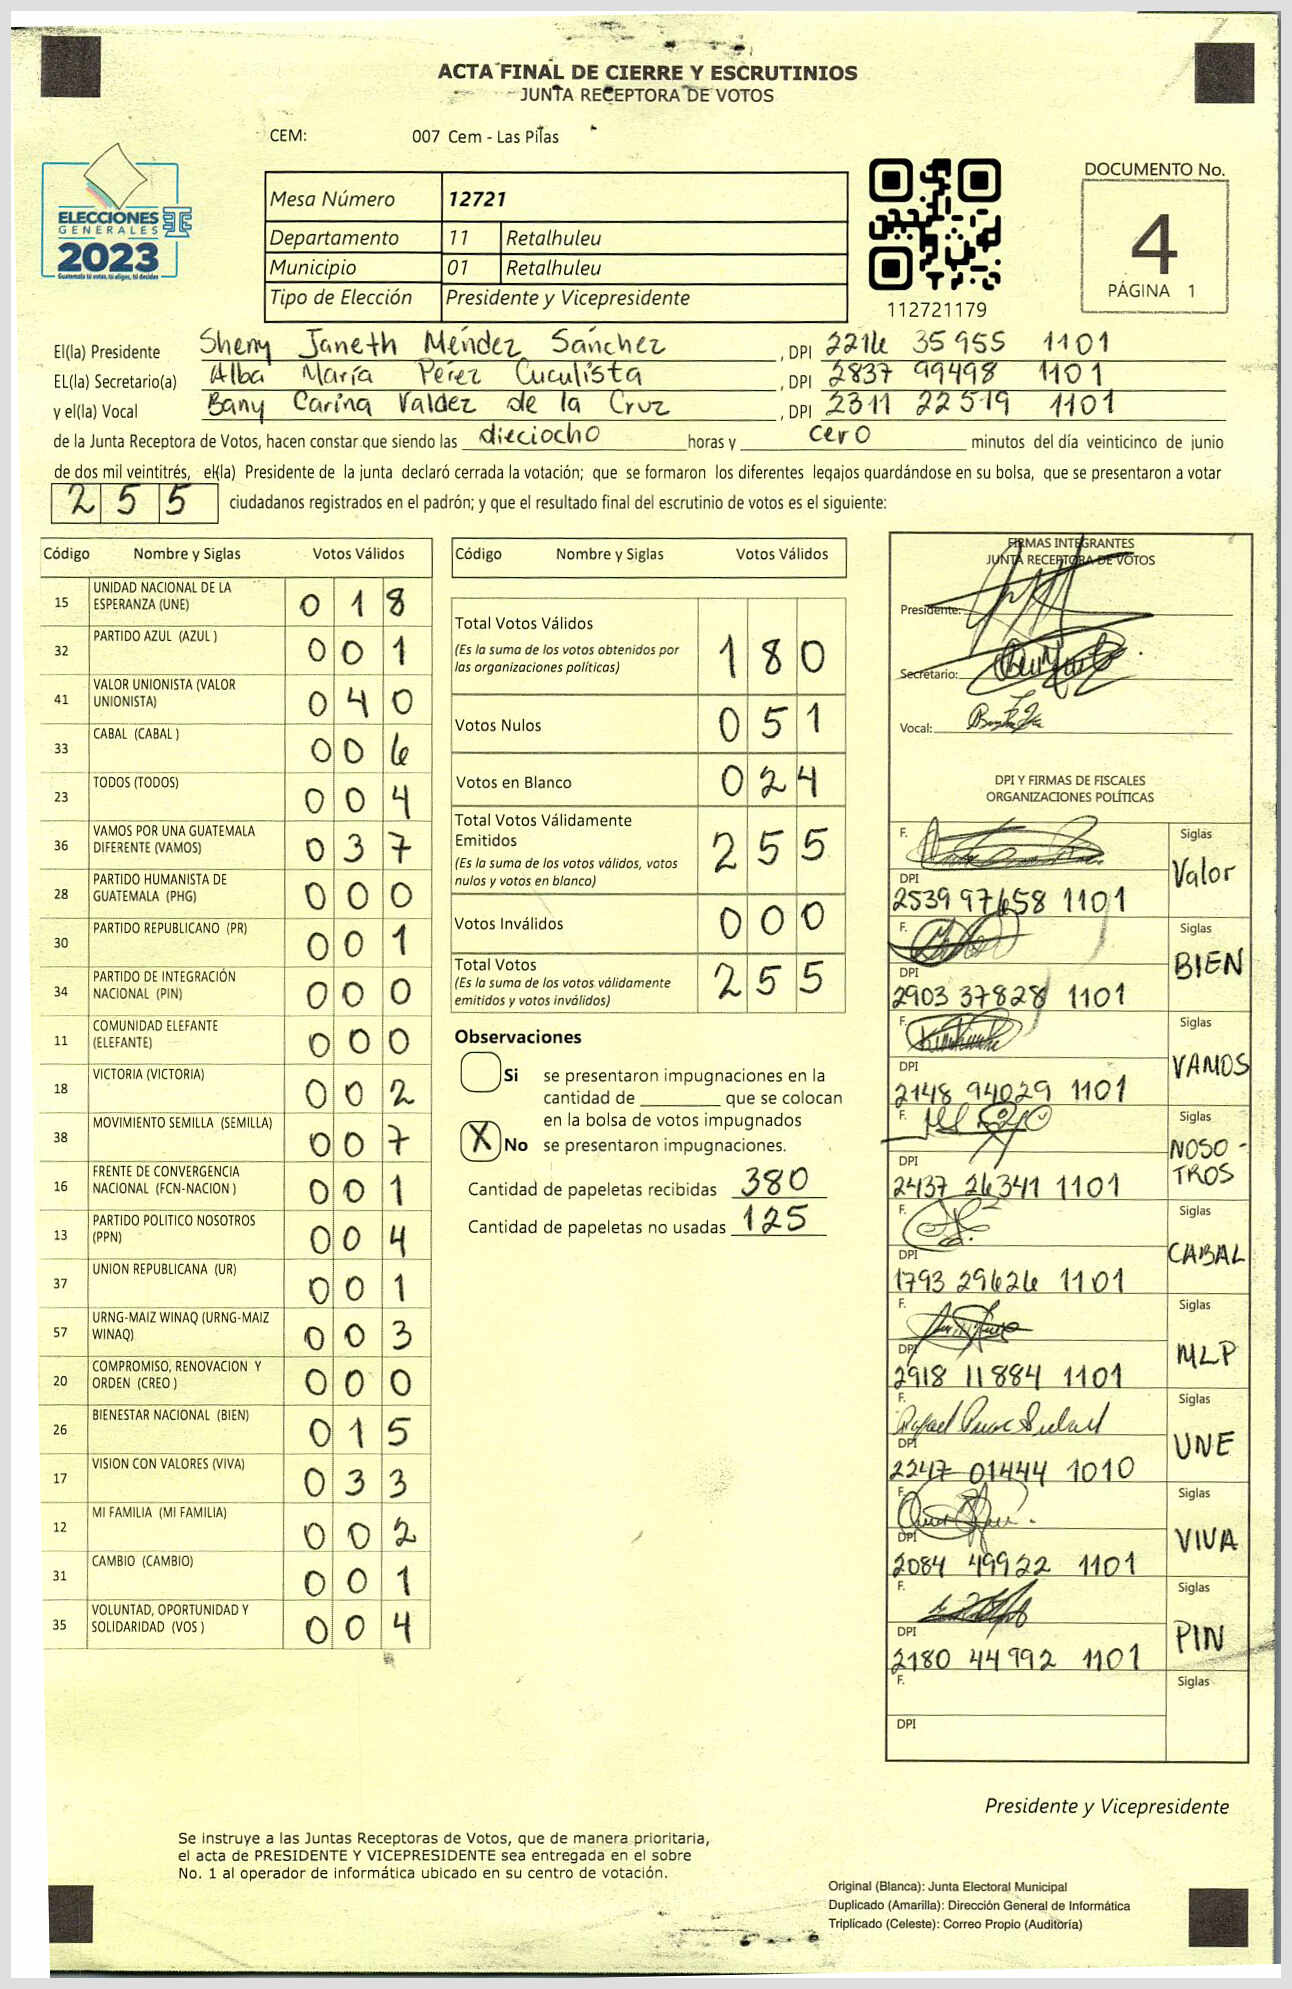 ACTA FINAL DE CIERRE Y ESCRUTINIOS
JUNTA RECEPTORA DE VOTOS
CEM: 007 Cem - Las Pilas
ELECCIONES
GENERALES
2023
Guatemala tú votas, tú eliges, tú decides
Mesa Número 12721
Departamento 11 Retalhuleu
Municipio 01 Retalhuleu
Tipo de Elección Presidente y Vicepresidente
112721179
DOCUMENTO No.
4
PÁGINA 1
El(la) Presidente Sheny Janeth Méndez Sánchez, DPI 2216 35955 1101
EL(la) Secretario(a) Alba María Pérez Cuculista, DPI 2837 99498 1101
y el(la) Vocal Bany Carina Valdez de la Cruz, DPI 2311 22519 1101
de la Junta Receptora de Votos, hacen constar que siendo las dieciocho horas y cero minutos del día veinticinco de junio
de dos mil veintitrés, el(la) Presidente de la junta declaró cerrada la votación; que se formaron los diferentes legajos guardándose en su bolsa, que se presentaron a votar
255 ciudadanos registrados en el padrón; y que el resultado final del escrutinio de votos es el siguiente:
Código Nombre y Siglas Votos Válidos
15 UNIDAD NACIONAL DE LA ESPERANZA (UNE) 018
32 PARTIDO AZUL (AZUL ) 001
41 VALOR UNIONISTA (VALOR UNIONISTA) 040
33 CABAL (CABAL ) 006
23 TODOS (TODOS) 004
36 VAMOS POR UNA GUATEMALA DIFERENTE (VAMOS) 037
28 PARTIDO HUMANISTA DE GUATEMALA (PHG) 000
30 PARTIDO REPUBLICANO (PR) 001
34 PARTIDO DE INTEGRACIÓN NACIONAL (PIN) 000
11 COMUNIDAD ELEFANTE (ELEFANTE) 000
18 VICTORIA (VICTORIA) 002
38 MOVIMIENTO SEMILLA (SEMILLA) 007
16 FRENTE DE CONVERGENCIA NACIONAL (FCN-NACION ) 001
13 PARTIDO POLITICO NOSOTROS (PPN) 004
37 UNION REPUBLICANA (UR) 001
57 URNG-MAIZ WINAQ (URNG-MAIZ WINAQ) 003
20 COMPROMISO, RENOVACION Y ORDEN (CREO ) 000
26 BIENESTAR NACIONAL (BIEN) 015
17 VISION CON VALORES (VIVA) 033
12 MI FAMILIA (MI FAMILIA) 002
31 CAMBIO (CAMBIO) 001
35 VOLUNTAD, OPORTUNIDAD Y SOLIDARIDAD (VOS ) 004
Código Nombre y Siglas Votos Válidos
Total Votos Válidos 180
(Es la suma de los votos obtenidos por
las organizaciones políticas)
Votos Nulos 051
Votos en Blanco 024
Total Votos Válidamente
Emitidos 255
(Es la suma de los votos válidos, votos
nulos y votos en blanco)
Votos Inválidos 000
Total Votos 255
(Es la suma de los votos válidamente
emitidos y votos inválidos)
Observaciones
Si se presentaron impugnaciones en la
cantidad de ________ que se colocan
en la bolsa de votos impugnados
X No se presentaron impugnaciones.
Cantidad de papeletas recibidas 380
Cantidad de papeletas no usadas 125
FIRMAS INTEGRANTES
JUNTA RECEPTORA DE VOTOS
Presidente:
Secretario:
Vocal:
DPI Y FIRMAS DE FISCALES
ORGANIZACIONES POLÍTICAS
F. Siglas
Valor
DPI
2539 97658 1101
F. Siglas
BIEN
DPI
2903 37828 1101
F. Siglas
VAMOS
DPI
2148 94029 1101
F. Siglas
NOSO-
TROS
DPI
2437 26341 1101
F. Siglas
CABAL
DPI
1793 29626 1101
F. Siglas
MLP
DPI
2918 11884 1101
F. Siglas
UNE
DPI
2247 01444 1010
F. Siglas
VIVA
DPI
2084 49922 1101
F. Siglas
PIN
DPI
2180 44992 1101
F. Siglas
DPI
Presidente y Vicepresidente
Se instruye a las Juntas Receptoras de Votos, que de manera prioritaria,
el acta de PRESIDENTE Y VICEPRESIDENTE sea entregada en el sobre
No. 1 al operador de informática ubicado en su centro de votación.
Original (Blanca): Junta Electoral Municipal
Duplicado (Amarilla): Dirección General de Informática
Triplicado (Celeste): Correo Propio (Auditoría)